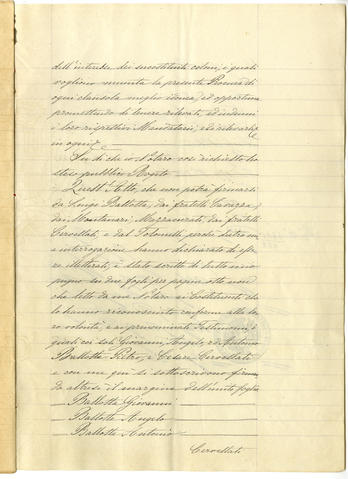 dell'intendere dei succostituiti coloni, i quali
vogliono munita la presente Procura di
ogni clausola meglio idonea, ed opportuna
promettendo di tenere rilevati, ed indenni
i loro rispettivi Mandatari, e di rilevarli
in ogni
Su di che io Notaro così richiesto ho
steso pubblico Rogito
Quest'Atto, che non potrà firmarsi
da Luigi Ballotta, dai fratelli
dai Montanari, Mazzacurati, dai fratelli
Cervellati, e dal Tolomelli perchè dietro mi
a interrogazione hanno dichiarato di esse
re illetterati, è stato scritto di tutto mio
pugno su due fogli per pagine otto non
che letto da me Notaro ai Costituenti che
lo hanno riconosciuto conforme alla lo
ro volontà, e ai prenominati Testimoni, i
quali coi soli Giovanni, Angelo, ed Antonio
Ballotta Pietro, e Cesare Cervellati
e con me qui si sottoscrivono firman
do altresì il margine dell'unito foglio
Ballotta Giovanni
Ballotta Angelo
Ballotta Antonio
Cervellati